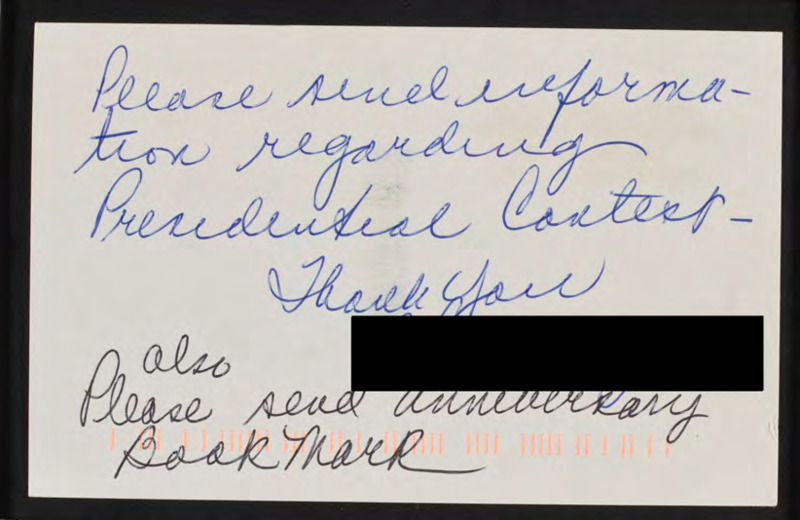 Please send informa-
tion regarding
Presidential Contest-
Thank you
also
Please send anniversary
Book Mark